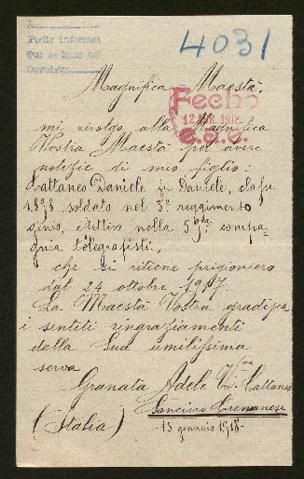 A
Pedir informes
que se hace del
4031
Magnifica Maestà.
Fecho
12 1918
mi rivolgo alla Magnifica
Vostra Maestà per avere
notifie di mio figlio:
Cattaneo Daniele fu Daniele, classe
1898 soldato nel 3º reggimento
genio, effettivo nella 5ª compa-
gnia telegrafisti,
che si ritiene prigioniero
dal 24 ottobre 1917.
La Maestà Vostra gradisca
i sentiti ringraziamenti
dalla Sua umilissima
serva
Granata Adele Va Cattaneo
(Italia)
Soncino Cremonese
- 13 gennaio 1918 -